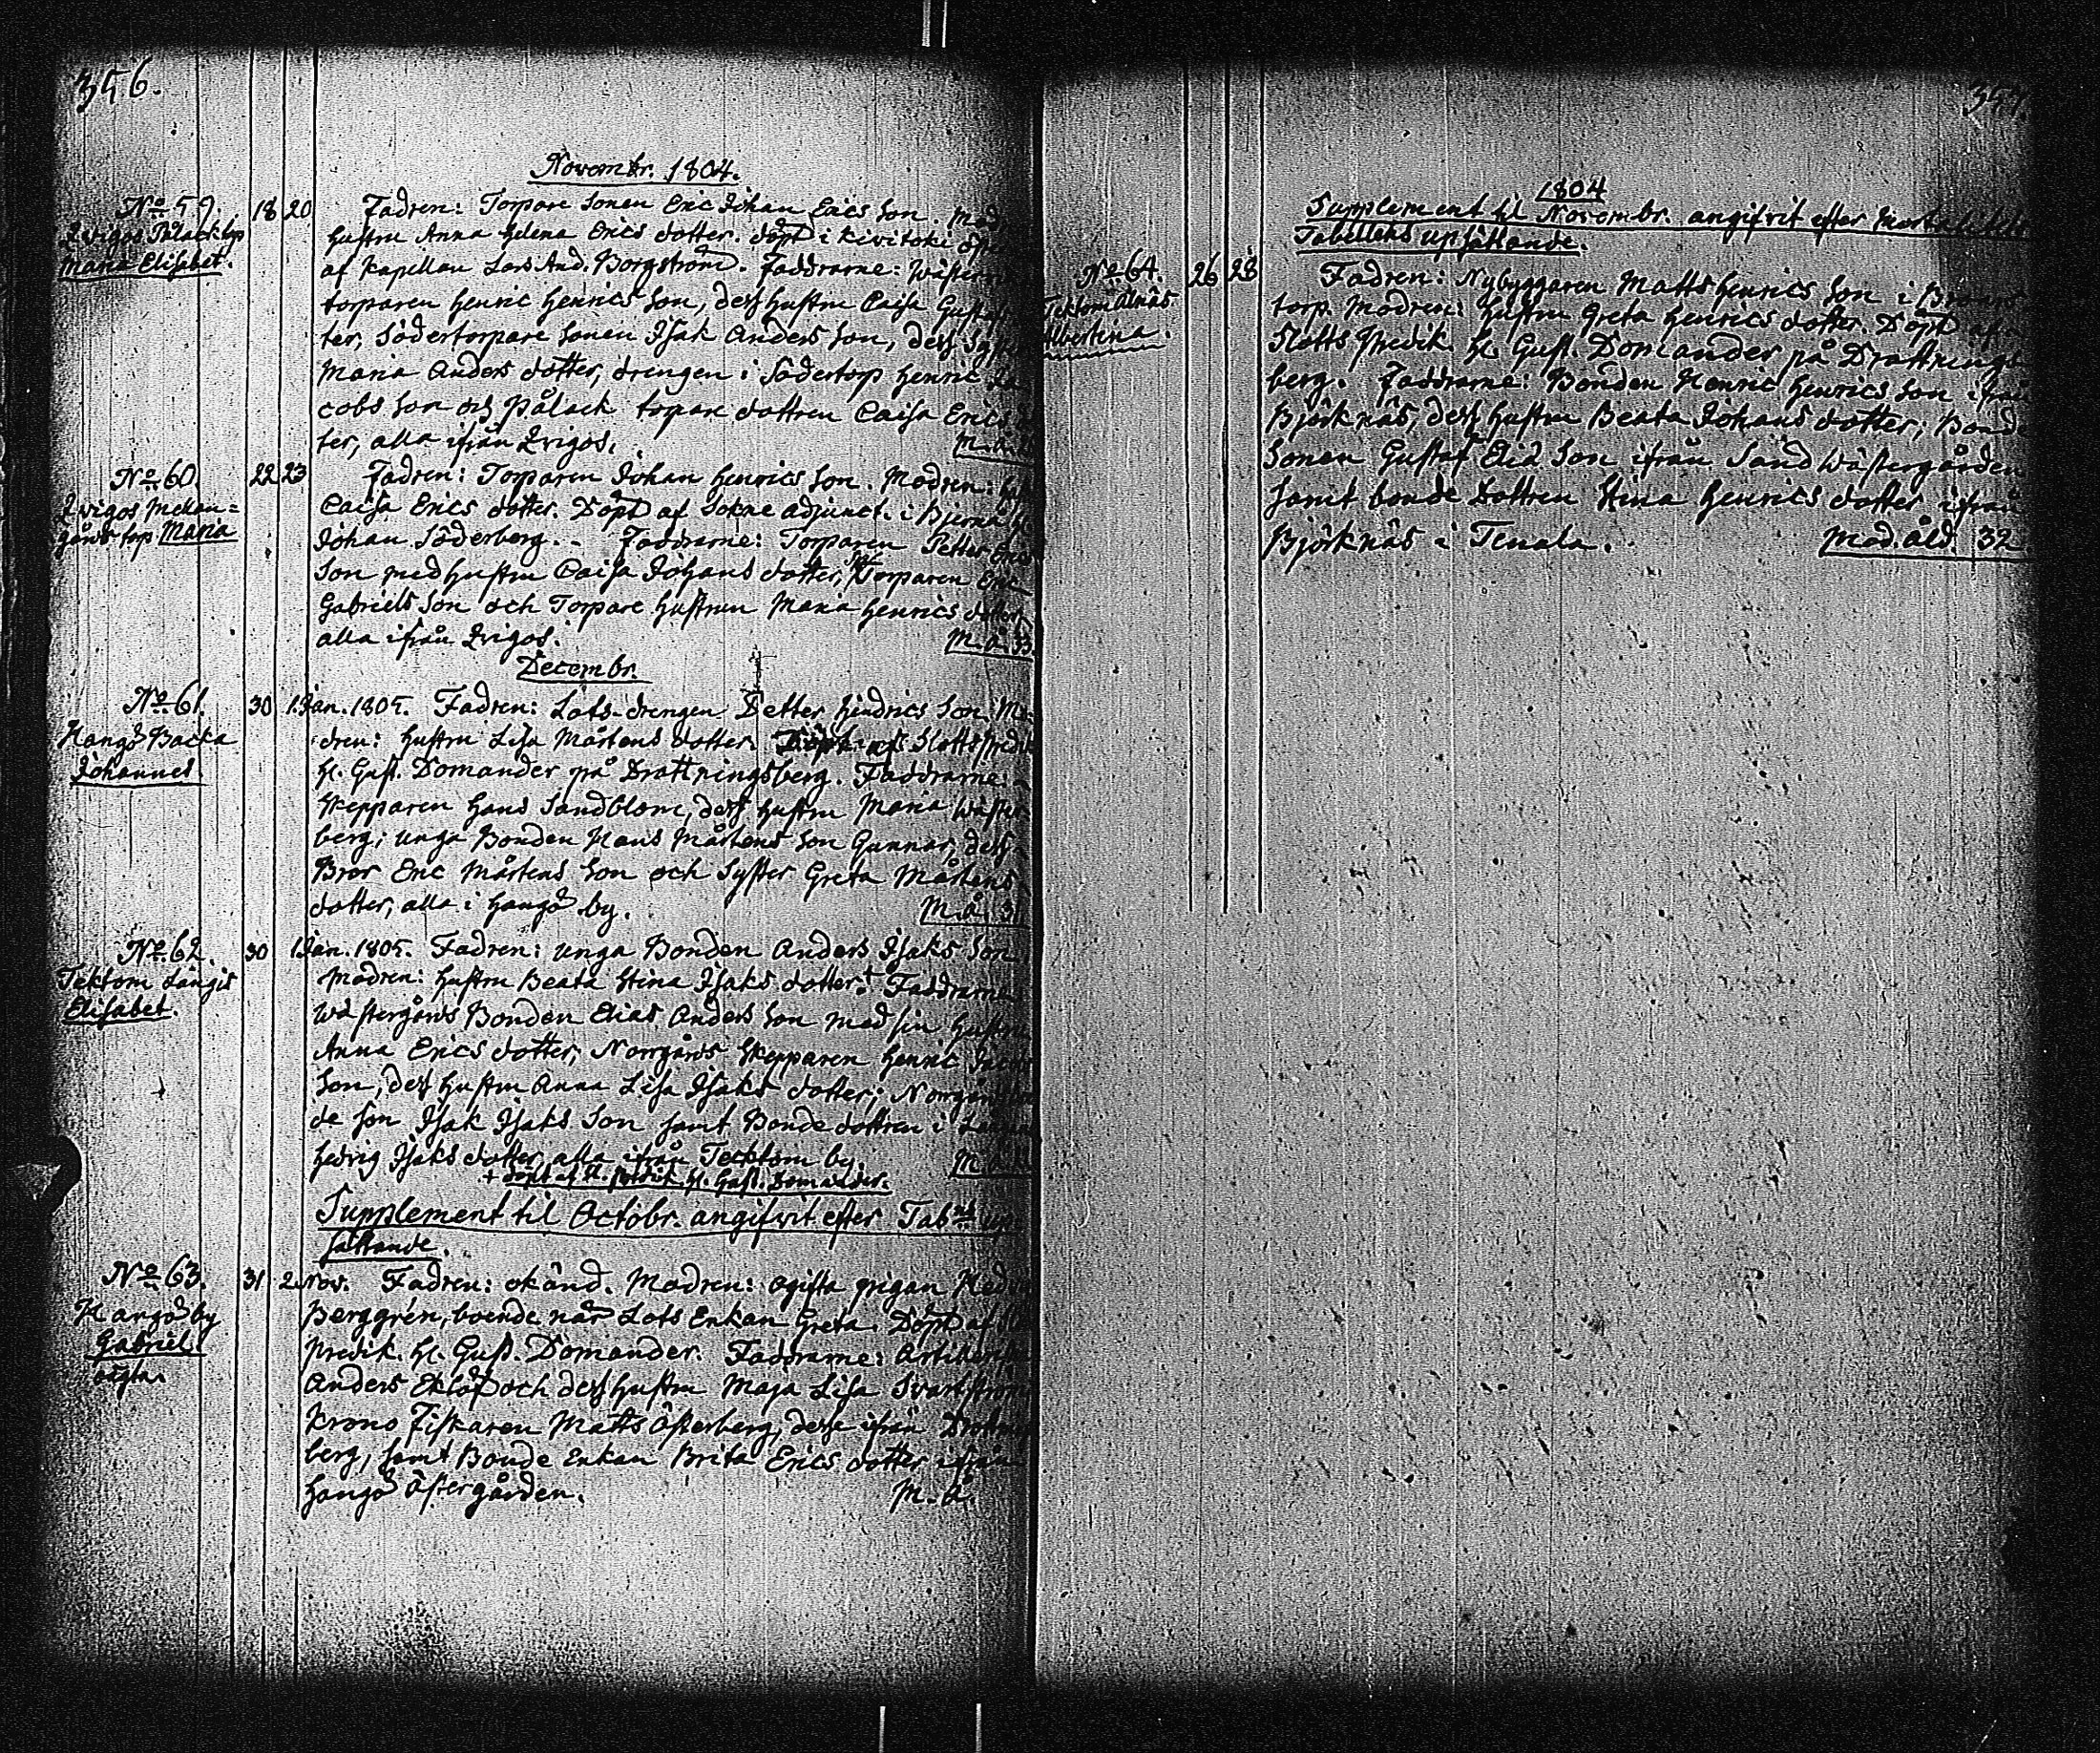 356.
Novembr. 1804.
No 59. 18 20 Fadren: Torpare Sonen Eric Johan Erics Son. Mod
Qvigos Pålack tp hustru Anna Helena Erics dotter. döpt i Kivitoki
Maria Elisabet. af Kapellan Lars And. Borgström. Faddrarne: Wäster
torparen Henric Henrics Son, dess hustru Caisa Gustaf
ter, Södertorpare Sonen Isak Anders Son, dess Syster
Maria Anders dotter, drengen i Södertorp Henric Ja
cobs Son och Pålack torpare dottren Caisa Erics
ter, alla ifrån Qvigos. M. å.
No 60. 22 23 Fadren: Torparen Johan Henrics Son. Modren: Hust
Qvigos Mellan= Caisa Erics dotter. Döpt af Sokne adjunct. i Bjerna H.
gårds torp Maria Johan Söderberg. - Faddrarne: Torparen Petter Erics
Son med hustru Caisa Johans dotter, Torparen Eric
Gabriels Son och Torpare hustrun Maria Henrics dotter
alla ifrån Qvigos. M. å. 33.
Decembr.
No 61. 30 1. Jan. 1805. Fadren: Lots-drengen Petter Hindrics Son. Mo-
Hangö Backa dren: hustru Lisa Mårtens dotter. Döpt af Slotts Predik
Johannes. H. Gust. Domander på Drottningsberg. Faddrarne:
Skepparen Hans Sandblom, dess hustru Maria Wäster
berg; unga Bonden Hans Mårtens Son Gunnar, dess
Bror Eric Mårtens Son och Syster Greta Mårtens
dotter, alla i Hangö by. M. å. 31
No 62. 30 1. Jan. 1805. Fadren: unga Bonden Anders Isaks Son
Tektom Långis Modren: hustru Beata Stina Isaks dotter. + Faddrarne
Elisabet. Wästergårds Bonden Elias Anders Son med sin hustru
Anna Erics dotter, Norrgårds Skepparen Henric Jacobs
Son, dess hustru Anna Lisa Isaks dotter; Norrgårds bon
de Son Isak Isaks Son samt Bonde dottren i
Hedvig Isaks dotter, alla ifrån Tecktom by. M. å.
+ döpt af Sl. predik. H. Gust. Domander.
Supplement til Octobr. angifvit efter Tabns up
sättande.
No 63. 31 2. Nov. Fadren: okänd. Modren: ogifta pigan Hed
Hangö by Berggrén, boende när Lots Enkan Greta. Döpt af
Gabriel. predik. H. Gust. Domander. Faddrarne: Artilleri
oägta. Anders Eklöf och dess hustru Maja Lisa Svartström
Krono Fiskaren Matts Österberg, desse ifrån Drottnings
berg, samt Bonde Enkan Brita Erics dotter ifrån
Hangö Östergården. M. å.
357.
1804
Supplement til Novembr. angifvit efter Mortalitets
Tabellens upsättande.
No 64. 26 28 Fadren: Nybyggaren Matts Henrics Son i Broms
Tektom Alnäs torp. Modren: hustru Greta Henrics dotter. Döpt af
Albertina. Slotts Predik. H. Gust. Domander på Drottnings
berg. Faddrarne: Bonden Henric Henrics Son ifrån
Björknäs, dess hustru Beata Johans dotter; Bonde
Sonen Gustaf Elia Son ifrån Sand Wästergården
samt bonde Dottren Stina Henrics dotter ifrån
Björknäs i Tenala. Mod. åld. 32